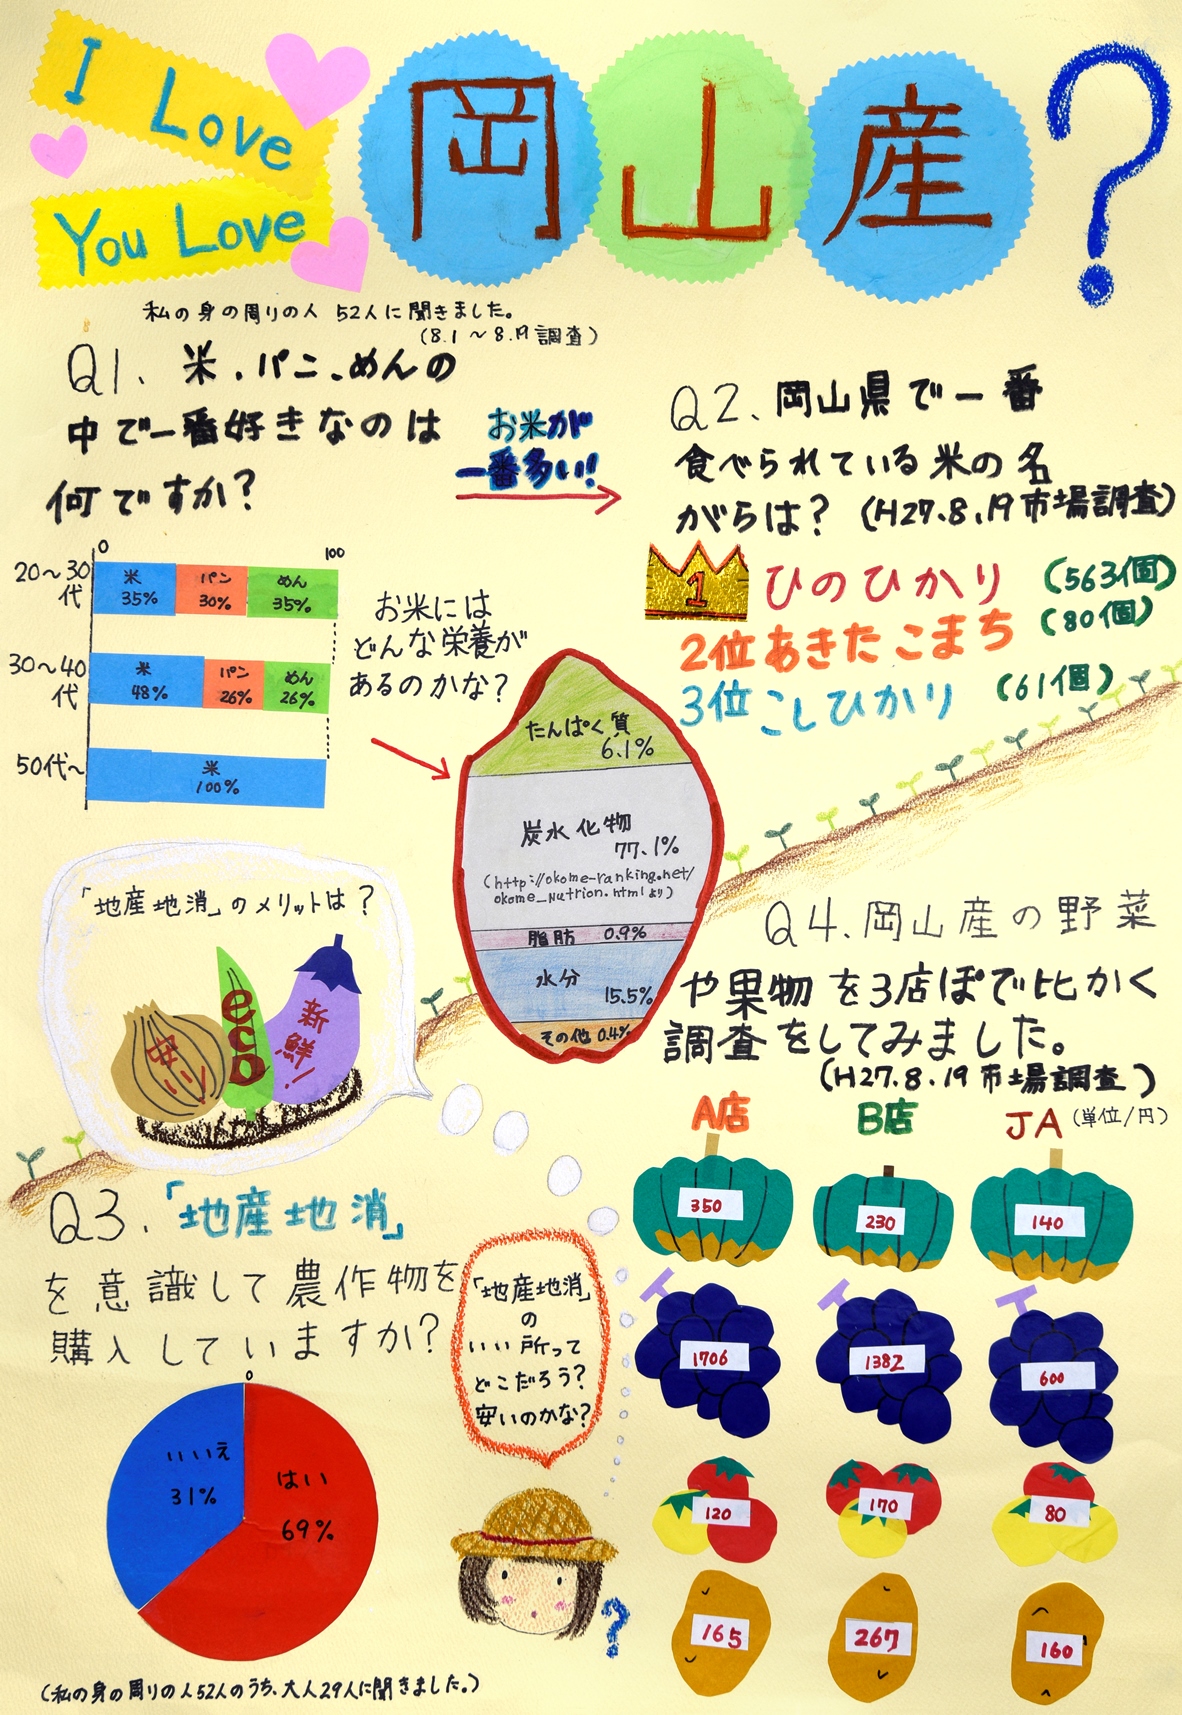 I Love
You Love
岡山産?
私の身の周りの人 52人に聞きました。
(8.1～8.19調査)
Q1. 米.パン.めんの
中で一番好きなのは
何ですか?
お米が
一番多い!
0 100
20～30代
米 35%
パン 30%
めん 35%
30～40代
米 48%
パン 26%
めん 26%
50代～
米 100%
お米には
どんな栄養が
あるのかな?
たんぱく質
6.1%
炭水化物
77.1%
(http://okome-ranking.net/
okome_nutrion.htmlより)
脂肪 0.9%
水分
15.5%
その他 0.4%
Q2. 岡山県で一番
食べられている米の名
がらは? (H27.8.19市場調査)
1 ひのひかり (563個)
2位あきたこまち (80個)
3位こしひかり (61個)
「地産地消」のメリットは?
安い!
eco
新鮮!
Q3.「地産地消」
を意識して農作物を
購入していますか?
0
いいえ
31%
はい
69%
(私の身の周りの人52人のうち、大人29人に聞きました。)
「地産地消」
の
いい所って
どこだろう?
安いのかな?
?
Q4.岡山産の野菜
や果物を3店ぽで比かく
調査をしてみました。
(H27.8.19市場調査)
A店 B店 JA (単位/円)
350 230 140
1706 1382 600
120 170 80
165 267 160